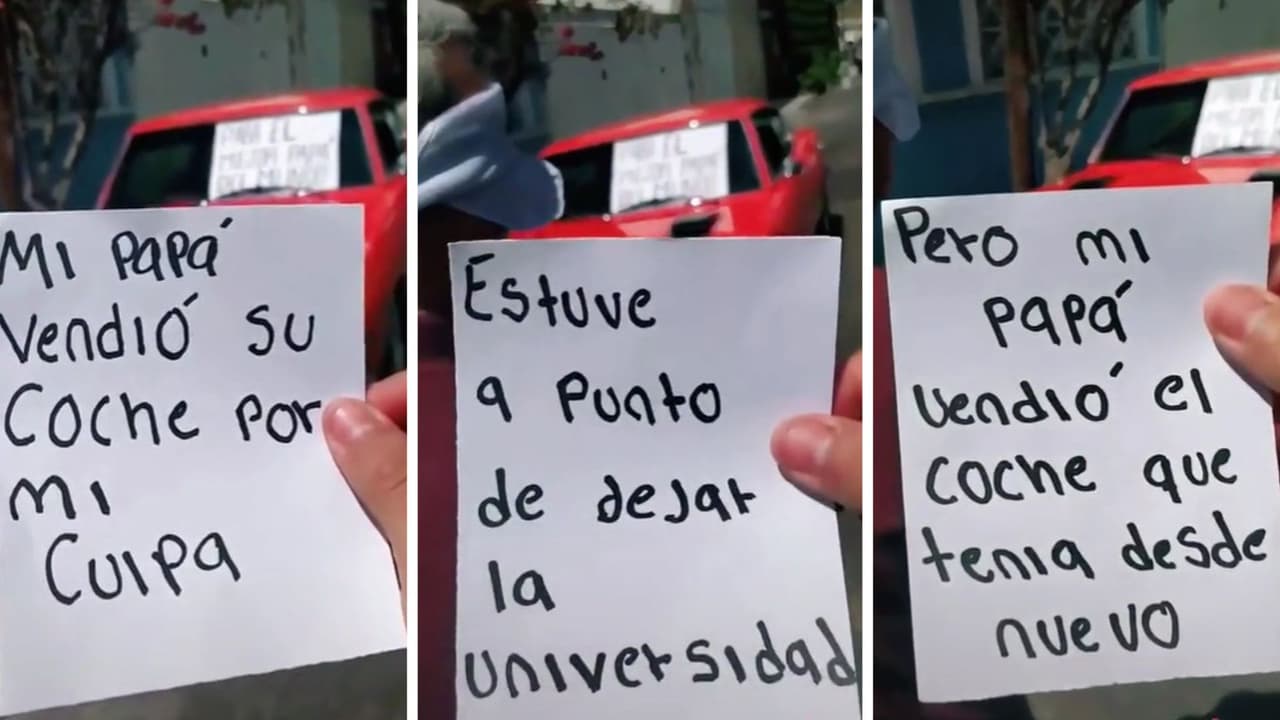 PARA EL
MEJOR PAPÁ
DEL MUNDO
Mi Papá
Vendió su
Coche por
mi
Culpa
PARA EL
MEJOR PAPÁ
DEL MUNDO
Estuve
a Punto
de dejar
la
universidad
PARA EL
Pero mi
papá
vendió el
coche que
tenia desde
nuevo